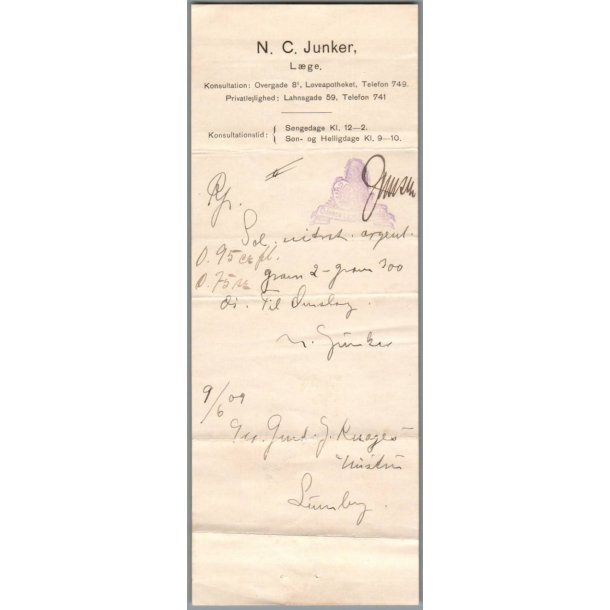 N. C. Junker,
Læge.
Konsultation: Overgade 8¹, Løveapotheket, Telefon 749.
Privatlejlighed: Lahnsgade 59, Telefon 741
Konsultationstid: { Søngedage Kl. 12—2.
Søn- og Helligdage Kl. 9—10.
Jensen
Rp.
Sol. nitrat. argent.
0.95 cc fl.
0.75 gram 2 – gram 300
ds. Til Omslag.
N. Junker
9/6 09
Gmd. J.
Hustru
Lumby.